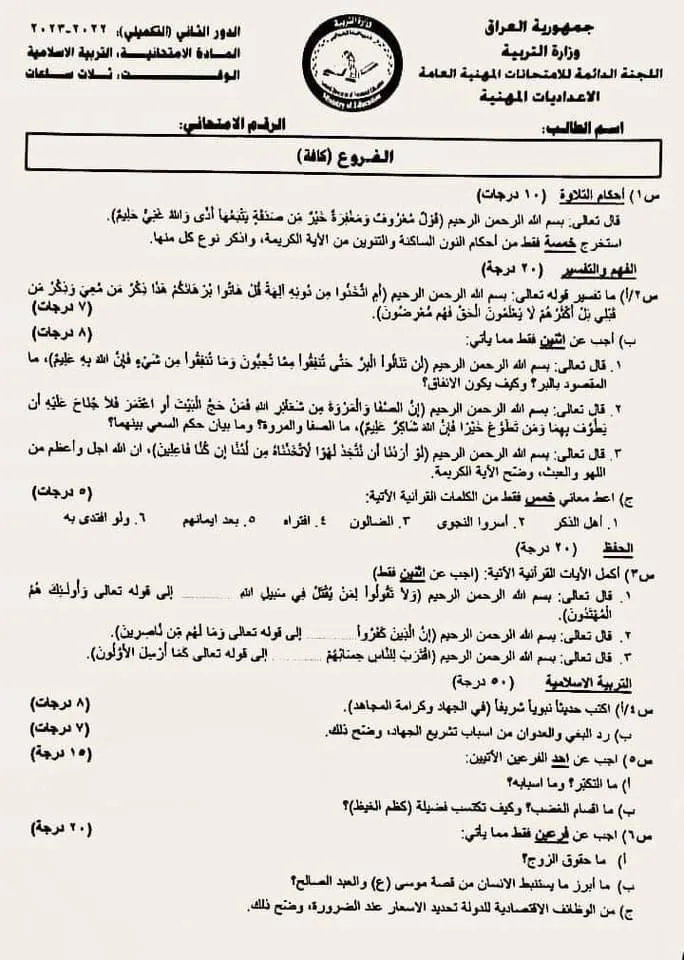 جمهورية العراق
وزارة التربية
اللجنة الدائمة للامتحانات المهنية العامة
الاعداديات المهنية
الدور الثاني (التكميلي): ٢٠٢٢-٢٠٢٣
المادة الامتحانية: التربية الاسلامية
الوقت: ثلاث ساعات
وزارة التربية
Ministry of Education
اسم الطالب:
الرقم الامتحاني:
الفروع (كافة)
س١) أحكام التلاوة (١٠ درجات)
قال تعالى: بسم الله الرحمن الرحيم (قَوْلٌ مَّعْرُوفٌ وَمَغْفِرَةٌ خَيْرٌ مِّن صَدَقَةٍ يَتْبَعُهَا أَذًى وَاللهُ غَنِيٌّ حَلِيمٌ).
استخرج خمسة فقط من أحكام النون الساكنة والتنوين من الآية الكريمة، واذكر نوع كل منها.
الفهم والتفسير (٢٠ درجة)
س٢/أ) ما تفسير قوله تعالى: بسم الله الرحمن الرحيم (أَمِ اتَّخَذُوا مِن دُونِهِ آلِهَةً قُلْ هَاتُوا بُرْهَانَكُمْ هَذَا ذِكْرُ مَن مَّعِيَ وَذِكْرُ مَن
قَبْلِي بَلْ أَكْثَرُهُمْ لَا يَعْلَمُونَ الْحَقَّ فَهُم مُّعْرِضُونَ). (٧ درجات)
ب) أجب عن إثنين فقط مما يأتي: (٨ درجات)
١. قال تعالى: بسم الله الرحمن الرحيم (لَن تَنَالُوا الْبِرَّ حَتَّى تُنفِقُوا مِمَّا تُحِبُّونَ وَمَا تُنفِقُوا مِن شَيْءٍ فَإِنَّ اللهَ بِهِ عَلِيمٌ)، ما
المقصود بالبر؟ وكيف يكون الانفاق؟
٢. قال تعالى: بسم الله الرحمن الرحيم (إِنَّ الصَّفَا وَالْمَرْوَةَ مِن شَعَائِرِ اللهِ فَمَنْ حَجَّ الْبَيْتَ أَوِ اعْتَمَرَ فَلَا جُنَاحَ عَلَيْهِ أَن
يَطَّوَّفَ بِهِمَا وَمَن تَطَوَّعَ خَيْرًا فَإِنَّ اللهَ شَاكِرٌ عَلِيمٌ)، ما الصفا والمروة؟ وما بيان حكم السعي بينهما؟
٣. قال تعالى: بسم الله الرحمن الرحيم (لَوْ أَرَدْنَا أَن نَّتَّخِذَ لَهْوًا لَّاتَّخَذْنَاهُ مِن لَّدُنَّا إِن كُنَّا فَاعِلِينَ)، ان الله اجل وأعظم من
اللهو والعبث، وضح الآية الكريمة.
ج) اعط معاني خمس فقط من الكلمات القرآنية الآتية: (٥ درجات)
١. أهل الذكر ٢. أسروا النجوى ٣. الضالون ٤. افتراه ٥. بعد ايمانهم ٦. ولو افتدى به
الحفظ (٢٠ درجة)
س٣) أكمل الآيات القرآنية الآتية: (اجب عن إثنين فقط)
١. قال تعالى: بسم الله الرحمن الرحيم (وَلَا تَقُولُوا لِمَنْ يُقْتَلُ فِي سَبِيلِ اللهِ .......... إلى قوله تعالى وَأُولَئِكَ هُمُ
الْمُهْتَدُونَ).
٢. قال تعالى: بسم الله الرحمن الرحيم (إِنَّ الَّذِينَ كَفَرُوا.......... إلى قوله تعالى وَمَا لَهُم مِّن نَّاصِرِينَ).
٣. قال تعالى: بسم الله الرحمن الرحيم (اقْتَرَبَ لِلنَّاسِ حِسَابُهُمْ .......... إلى قوله تعالى كَمَا أُرْسِلَ الْأَوَّلُونَ).
التربية الاسلامية (٥٠ درجة)
س٤/أ) اكتب حديثاً نبوياً شريفاً (في الجهاد وكرامة المجاهد). (٨ درجات)
ب) رد البغي والعدوان من اسباب تشريع الجهاد، وضح ذلك. (٧ درجات)
س٥) اجب عن احد الفرعين الآتيين: (١٥ درجة)
أ) ما التكبّر؟ وما اسبابه؟
ب) ما اقسام الغضب؟ وكيف تكتسب فضيلة (كظم الغيظ)؟
س٦) اجب عن فرعين فقط مما يأتي: (٢٠ درجة)
أ) ما حقوق الزوج؟
ب) ما أبرز ما يستنبط الانسان من قصة موسى (ع) والعبد الصالح؟
ج) من الوظائف الاقتصادية للدولة تحديد الاسعار عند الضرورة، وضح ذلك.